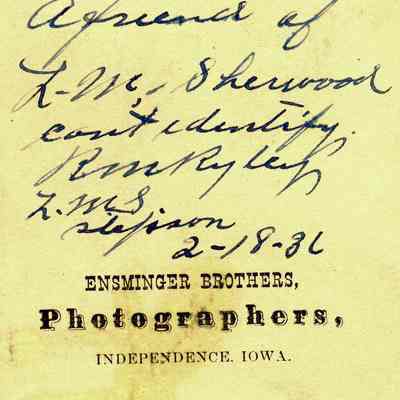 A friend of
L-M, Sherwood
can't identify.
L.M.S
stepson
2-18-31
ENSMINGER BROTHERS,
Photographers,
INDEPENDENCE. IOWA.